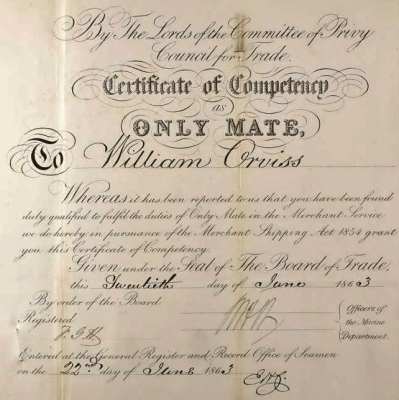 By The Lords of the Committee of Privy
Council for Trade.
Certificate of Competency
as
ONLY MATE,
To William Orviss
Whereas it has been reported to us that you have been found
duly qualified to fulfil the duties of Only Mate in the Merchant Service
we do hereby in pursuance of the Merchant Shipping Act 1854 grant
you this Certificate of Competency.
Given under the Seal of The Board of Trade,
this Twentieth day of June 1863
By order of the Board
Officers of
the Marine
Department.
Registered
Entered at the General Register and Record Office of Seamen
on the 22nd day of June 1863